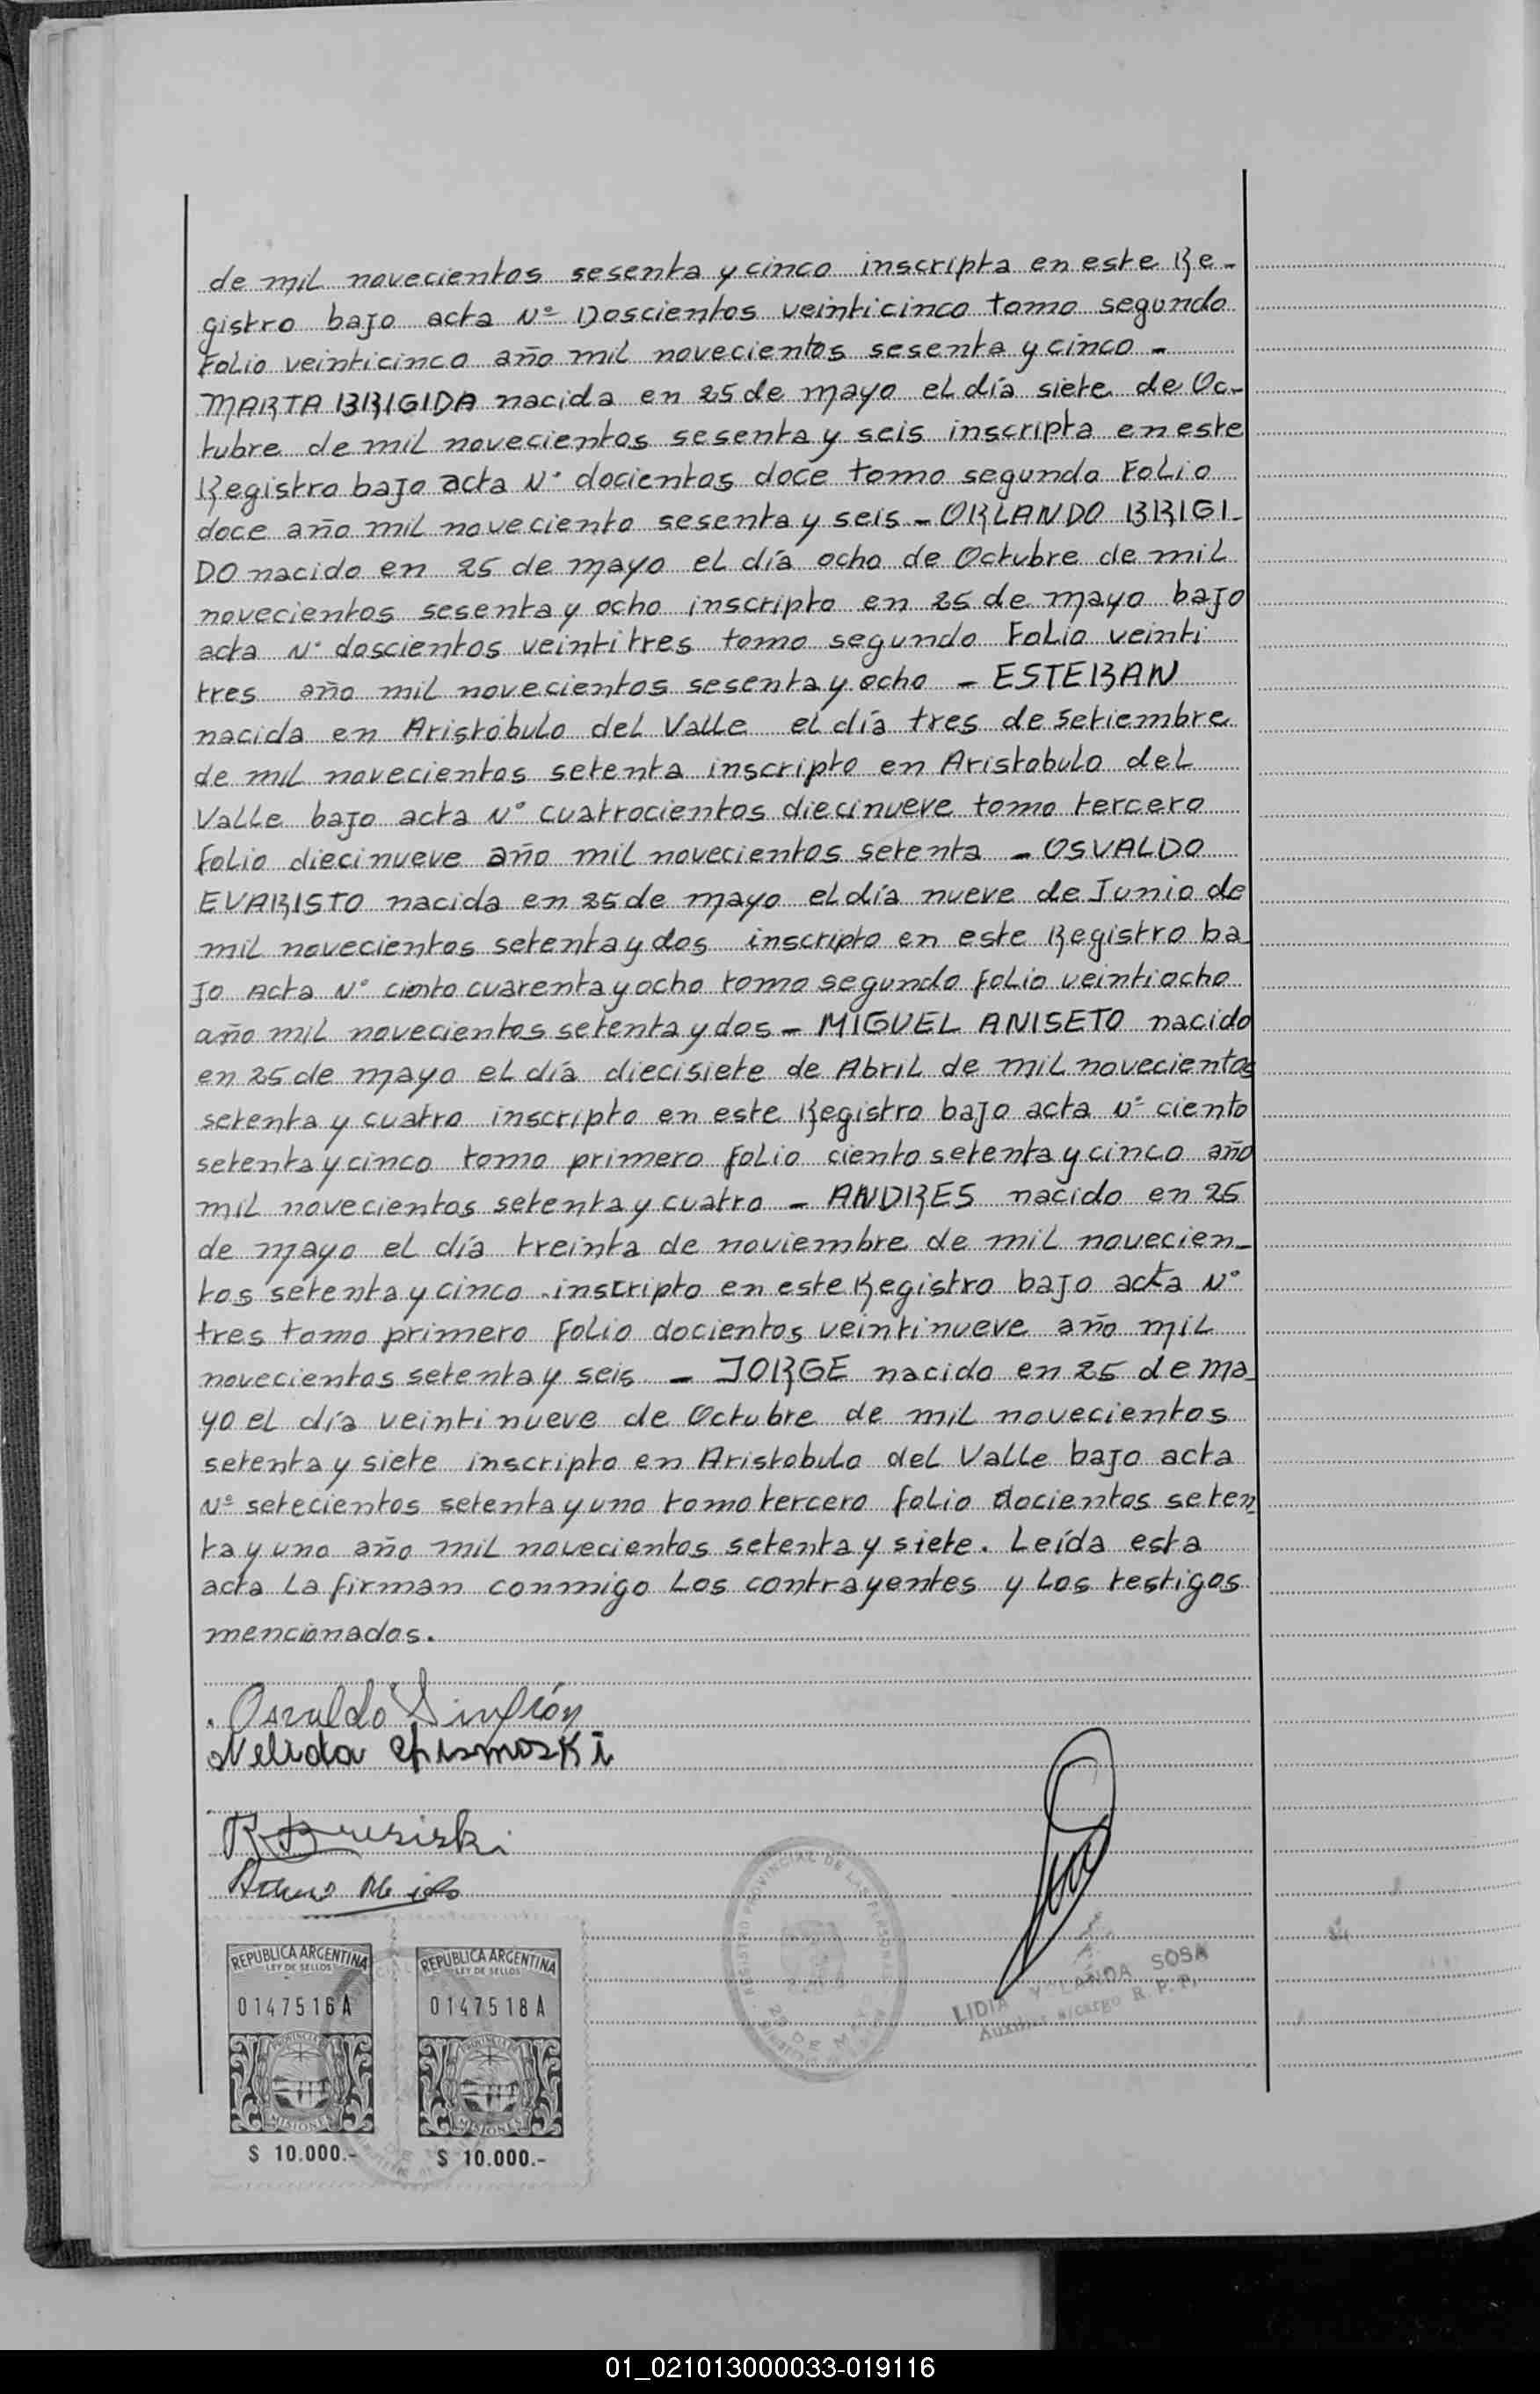 de mil novecientos sesenta y cinco inscripta en este Re-
gistro bajo acta Nº Doscientos veinticinco tomo segundo
Folio veinticinco año mil novecientos sesenta y cinco -
MARTA BRIGIDA nacida en 25 de mayo el día siete de Oc-
tubre de mil novecientos sesenta y seis inscripta en este
Registro bajo acta Nº docientos doce tomo segundo Folio
doce año mil noveciento sesenta y seis - ORLANDO BRIGI-
DO nacido en 25 de mayo el día ocho de Octubre de mil
novecientos sesenta y ocho inscripto en 25 de mayo bajo
acta Nº doscientos veintitres tomo segundo Folio veinti
tres año mil novecientos sesenta y ocho - ESTEBAN
nacida en Aristóbulo del Valle el día tres de setiembre
de mil novecientos setenta inscripto en Aristobulo del
Valle bajo acta Nº cuatrocientos diecinueve tomo tercero
folio diecinueve año mil novecientos setenta - OSVALDO
EVARISTO nacida en 25 de mayo el día nueve de Junio de
mil novecientos setenta y dos inscripto en este Registro ba-
Jo Acta Nº ciento cuarenta y ocho tomo segundo folio veintiocho
año mil novecientos setenta y dos - MIGUEL ANISETO nacido
en 25 de mayo el día diecisiete de Abril de mil novecientos
setenta y cuatro inscripto en este Registro bajo acta Nº ciento
setenta y cinco tomo primero folio ciento setenta y cinco año
mil novecientos setenta y cuatro - ANDRES nacido en 25
de mayo el día treinta de noviembre de mil novecien-
tos setenta y cinco inscripto en este Registro bajo acta Nº
tres tomo primero Folio docientos veintinueve año mil
novecientos setenta y seis - JORGE nacido en 25 de ma-
yo el día veintinueve de Octubre de mil novecientos
setenta y siete inscripto en Aristobulo del Valle bajo acta
Nº setecientos setenta y uno tomo tercero folio docientos seten
ta y uno año mil novecientos setenta y siete. Leída esta
acta la firman conmigo los contrayentes y los testigos
mencionados.
Osvaldo
Nelida chismoski
REGISTRO PROVINCIAL DE LAS PERSONAS
25 DE MAYO
LIDIA YOLANDA SOSA
Auxiliar a/cargo R. P. P.
REPUBLICA ARGENTINA
LEY DE SELLOS
0147516A
MISIONES
$ 10.000.-
REPUBLICA ARGENTINA
LEY DE SELLOS
0147518A
MISIONES
$ 10.000.-
01_021013000033-019116